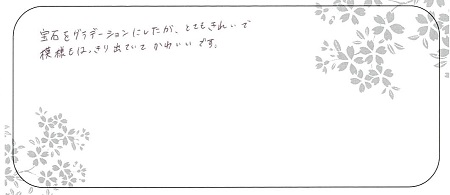 宝石をグラデーションにしたが、とてもきれいで
模様もはっきり出ていて かわいいです。